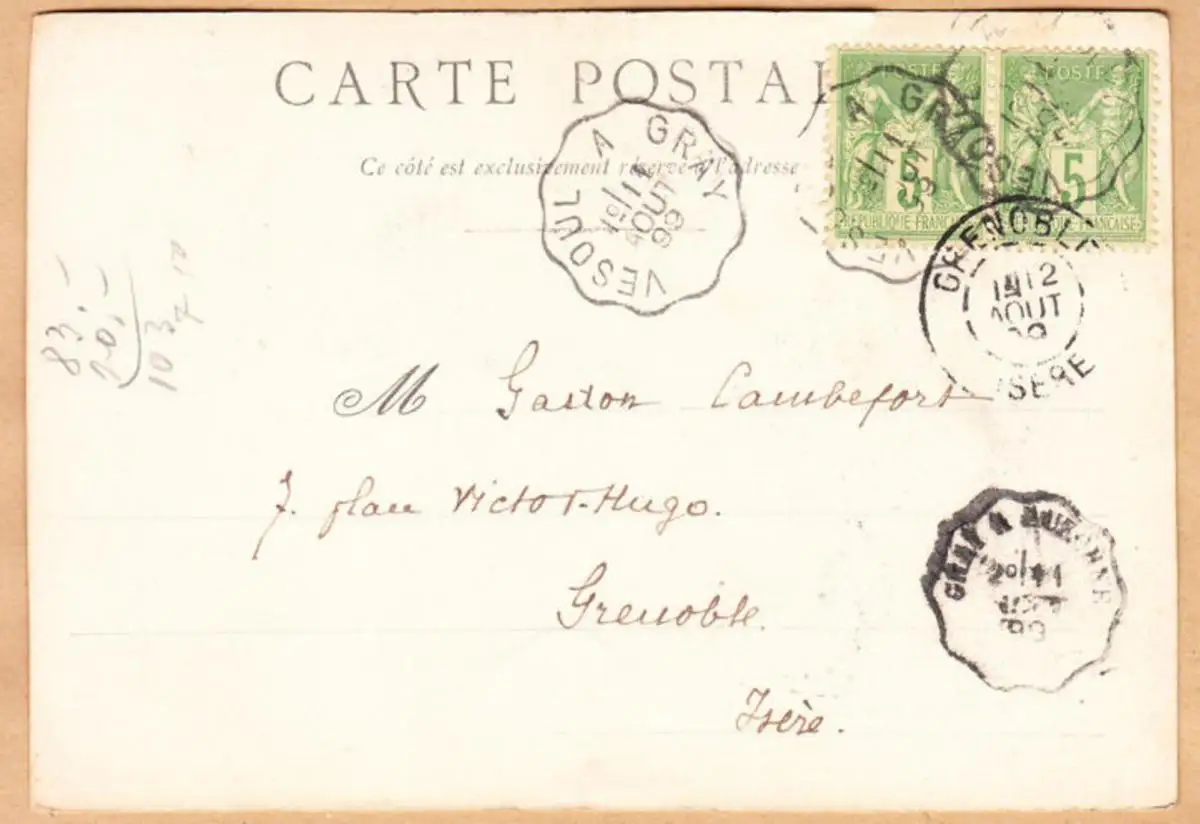 CARTE POSTAL
Ce côté est exclusivement réservé à l'adresse
POSTE
5
REPUBLIQUE FRANÇAISE
POSTE
5
REPUBLIQUE FRANÇAISE
VESOUL A GRAY
1º/11
AOUT
99
A GRAY
VESOUL
GRENOBLE
12
AOUT
ISERE
83.-
20.-
103
M Gaston Cambefort
7. place Victor-Hugo.
Grenoble.
Isère.
GRAY A AUXONNE
2º/11
AOUT
99